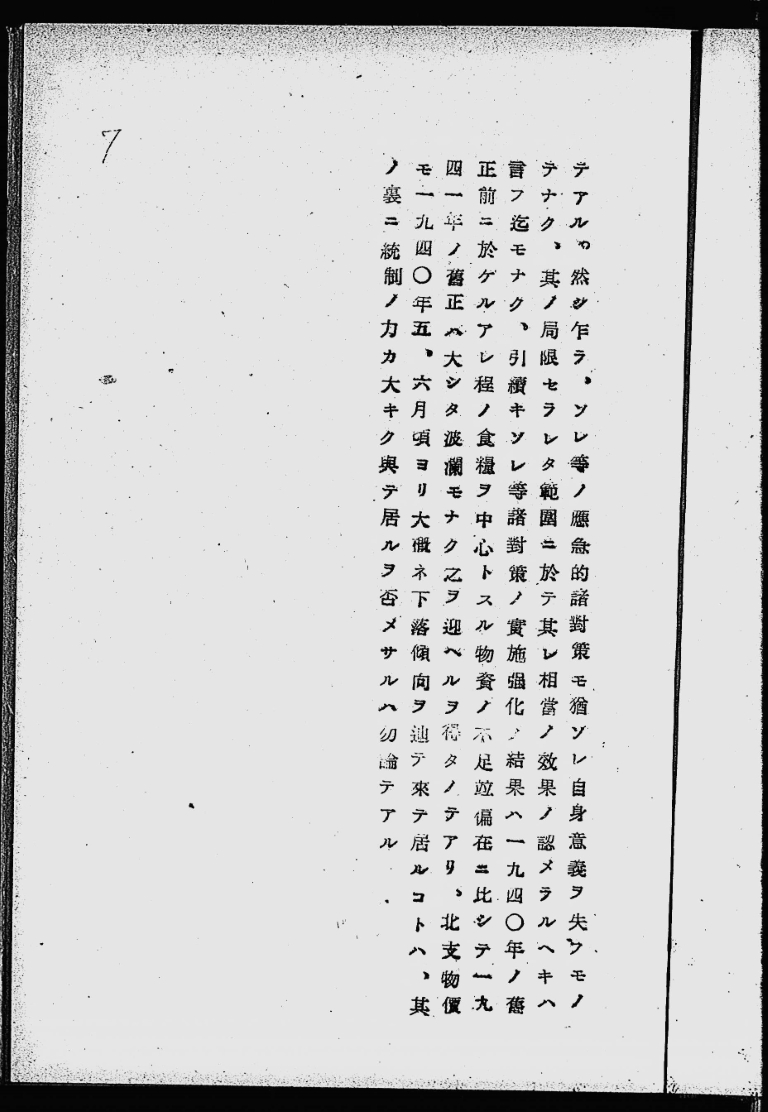 テアルや然シ乍ラ、ソレ等ノ應急的諸對策モ猶ソレ自身意義ヲ失フモノ
テナク、其ノ局限セラレタ範圍ニ於テ其レ相當ノ效果ノ認メラルヘキハ
言フ迄モナク、引續キソレ等諸對策ノ實施强化ノ結果ハ一九四〇年ノ舊
正前ニ於ケルアレ程ノ食糧ヲ中心トスル物資ノ不足竝偏在ニ比シテ一九
四一年ノ舊正ハ大シタ波瀾モナク之ヲ迎ヘルヲ得タノテアリ、北支物價
モ一九四〇年五、六月頃ヨリ大概ネ下落傾向ヲ辿テ來テ居ルコトハ、其
ノ裏ニ統制ノ力カ大キク與テ居ルヲ否メサルハ勿論テアル.
7